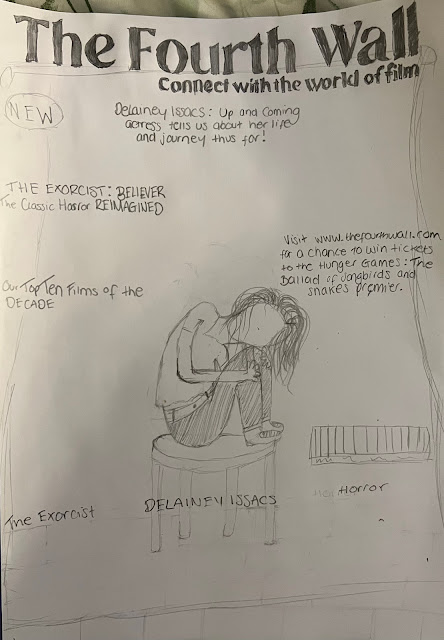 The Fourth Wall
Connect with the world of film
NEW
Delainey Issacs: Up and Coming
actress tells us about her life
and journey thus for!
THE EXORCIST: BELIEVER
The Classic Horror REIMAGINED
Visit www.thefourthwall.com
for a chance to win tickets
to the Hunger Games: The
Ballad of Songbirds and
snakes premier.
Our Top Ten Films of the
DECADE
DELAINEY ISSACS
Horror
The Exorcist